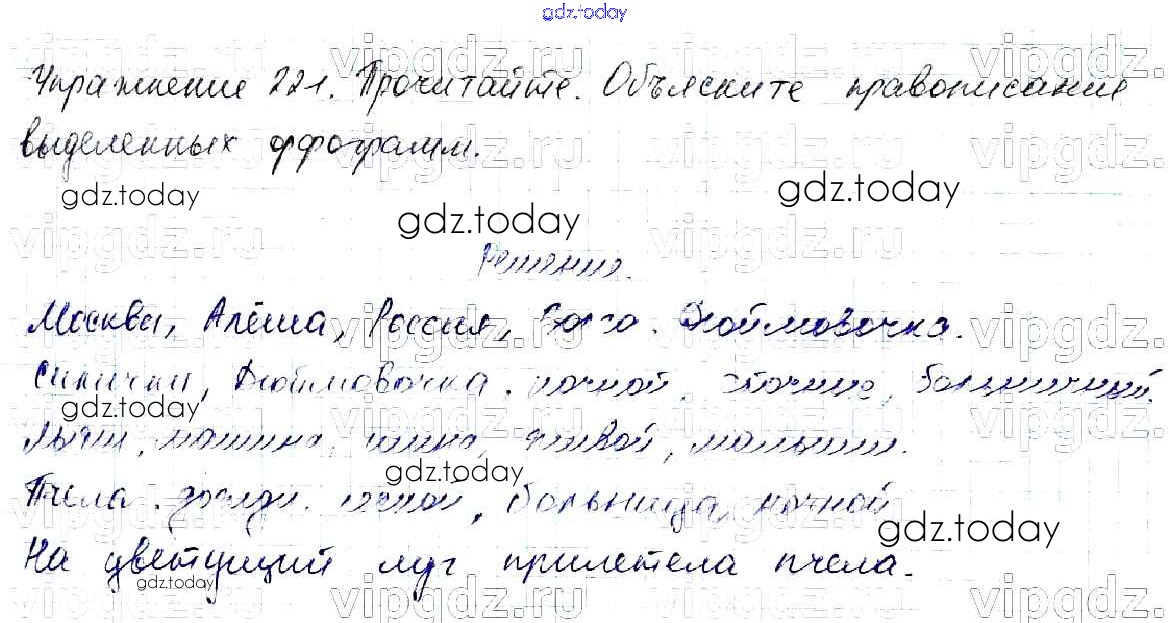 gdz.today
Упражнение 221. Прочитайте. Объясните правописание
выделенных орфограмм.
gdz.today
gdz.today
gdz.today
Решение.
Москва, Алёша, Россия, Дюймовочка.
Синички, Дюймовочка. ночной, больничный.
gdz.today
машина, живой, малыши.
gdz.today
Пчела. дожди. больница, ночной
gdz.today
На цветущий луг прилетела пчела.
gdz.today